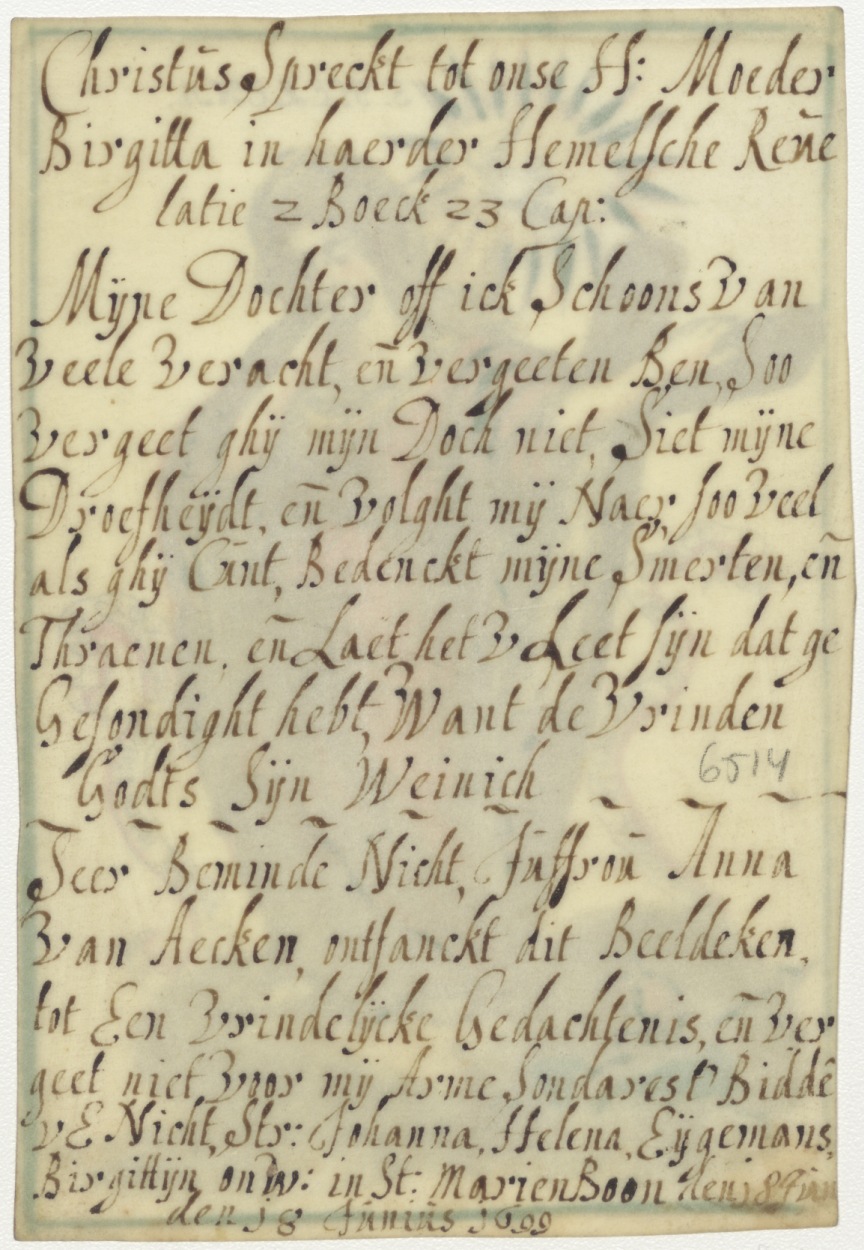 Christūs Spreckt tot onse H: Moeder
Birgitta in haerder Hemelsche Reūe
latie 2 Boeck 23 Cap:
Mÿne Dochter off ick Schoons van
veele veracht, en̄ vergeeten Ben, Soo
vergeet ghÿ mÿn Doch niet, Siet mÿne
Droefheÿdt, en̄ volght mÿ Naer, soo veel
als ghÿ Cūnt, Bedenckt mÿne Smerten, en̄
Thraenen, en̄ Laet het v Leet sÿn dat ge
Gesondight hebt, Want de Vrinden
Godts Sÿn Weinich
6514
Seer Beminde Nicht, Jūffroū Anna
Van Aecken, ontfanckt dit Beeldeken,
tot Een Vrindelÿcke Gedachtenis, en̄ ver
geet niet voor mÿ Arme Sondarest Biddē
vE Nicht, Str: Johanna, Helena, Eÿgemans,
Birgittÿn onw: in St: Marien Boon den 18
den 18 Jūniūs 1699